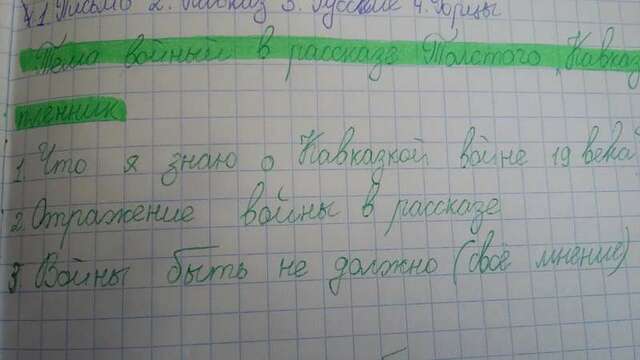 Тема войны в рассказе Толстого „Кавка
пленник
1 Что я знаю о Кавказкой войне 19 века
2 Отражение войны в рассказе
3 Войны быть не должно (своё мнение)